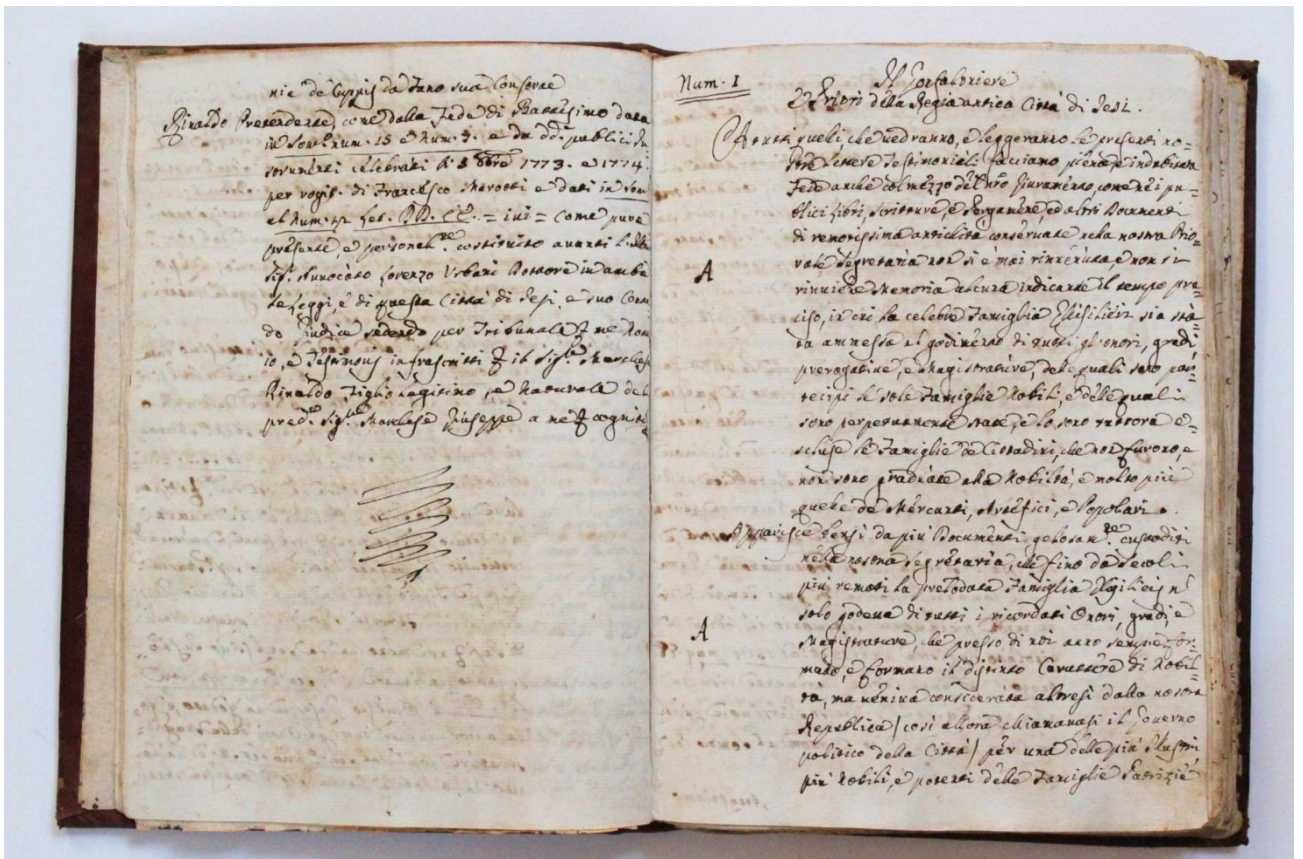 nie de Cuppis da Fano sua Consorte
Rinaldo Pretendente, come dalla Fede di Battesimo data
in Som.º num. 15 e Num. 3. e da dd. publici In
strumenti celebrati li 8bre 1773. e 1774.
per rogit. di Francesco e dati in Som
al Num. 12 Let. = ivi = Come pure
presente, e personal.re costituito avanti
Sig.r Avvocato Lorenzo Urbani Dottore in ambe
le Leggi, e di questa Città di Jesi, e suo Conta
do Giudice sedendo per Tribunale me Nota
io, e Testimonj infrascritti il Sig.r Marchese
Rinaldo Figlio Legitimo, e Naturale del
pred.º Sig.r Marchese Giuseppe a me cognito
Num. I
Il Gonfaloniere
e Priori della Regia antica Città di Jesi.
A tutti queli, che vedranno, e leggeranno le presenti no=
stre Lettere Testimoniali facciamo piena, e indubitata
Fede anche col mezzo del nrõ Giuramento, come nei pu=
blici Libri, Scritture, e Pergamene, ed altri Documenti
di remotissima antichità conservate nella nostra Prio=
rale Segretaria non si e mai rinvenuta, e non si
A
rinviene Memoria alcuna indicante il tempo pre=
ciso, in cui la celebre Famiglia Ghisilieri sia sta=
ta ammessa al godimento di tutti gl'onori, gradi
prerogative, e Magistrature, dele quali sono par=
tecipi le sole Famiglie Nobili, e delle quali
sono perpetuamente state, e lo sono tuttora e=
scluse le Famiglie de Cittadini, che non furono, e
non sono graduate alla Nobiltà, e molto più
quelle de Mercanti, Artefici, e Popolari.
Apparisce bensì da più Documenti gelosam.te custoditi
nella nostra Segretaria, che fino da Secoli
più remoti la prelodata Famiglia
solo godeva di tutti i ricordati Onori, gradi, e
A
Magistrature, che presso di noi anno sempre for=
mato, e formano il distinto Carattere di Nobil
tà, ma veniva considerata altresì dalla nostra
Republica / così allora chiamavasi il Governo
politico della Città / per una delle più Illustri
più Nobili, e potenti delle Famiglie Patrizie